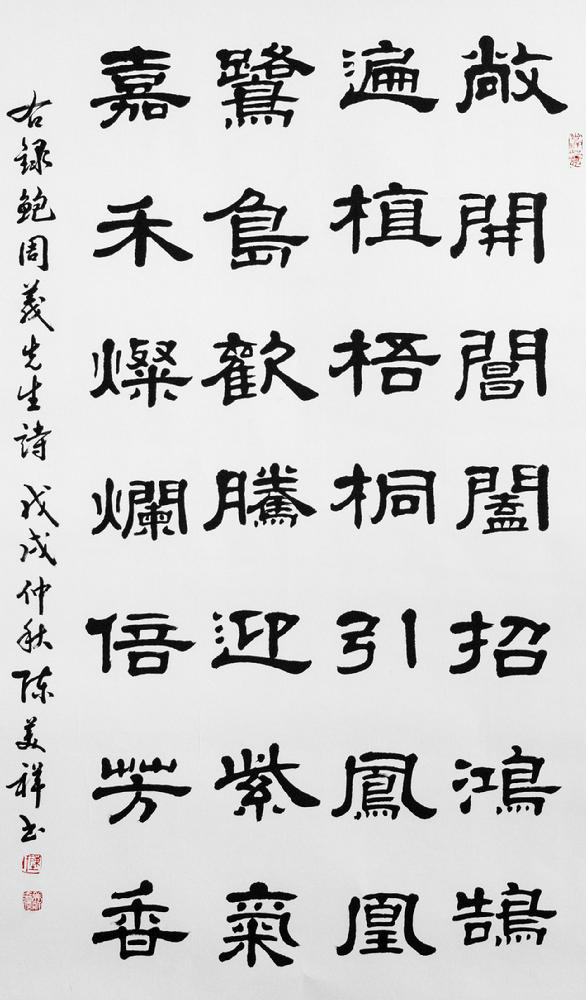 敞開閶闔招鴻鵠
遍植梧桐引鳳凰
鷺島歡騰迎紫氣
嘉禾燦爛倍芳香
右錄鮑周義先生詩戊戌仲秋陳美祥书